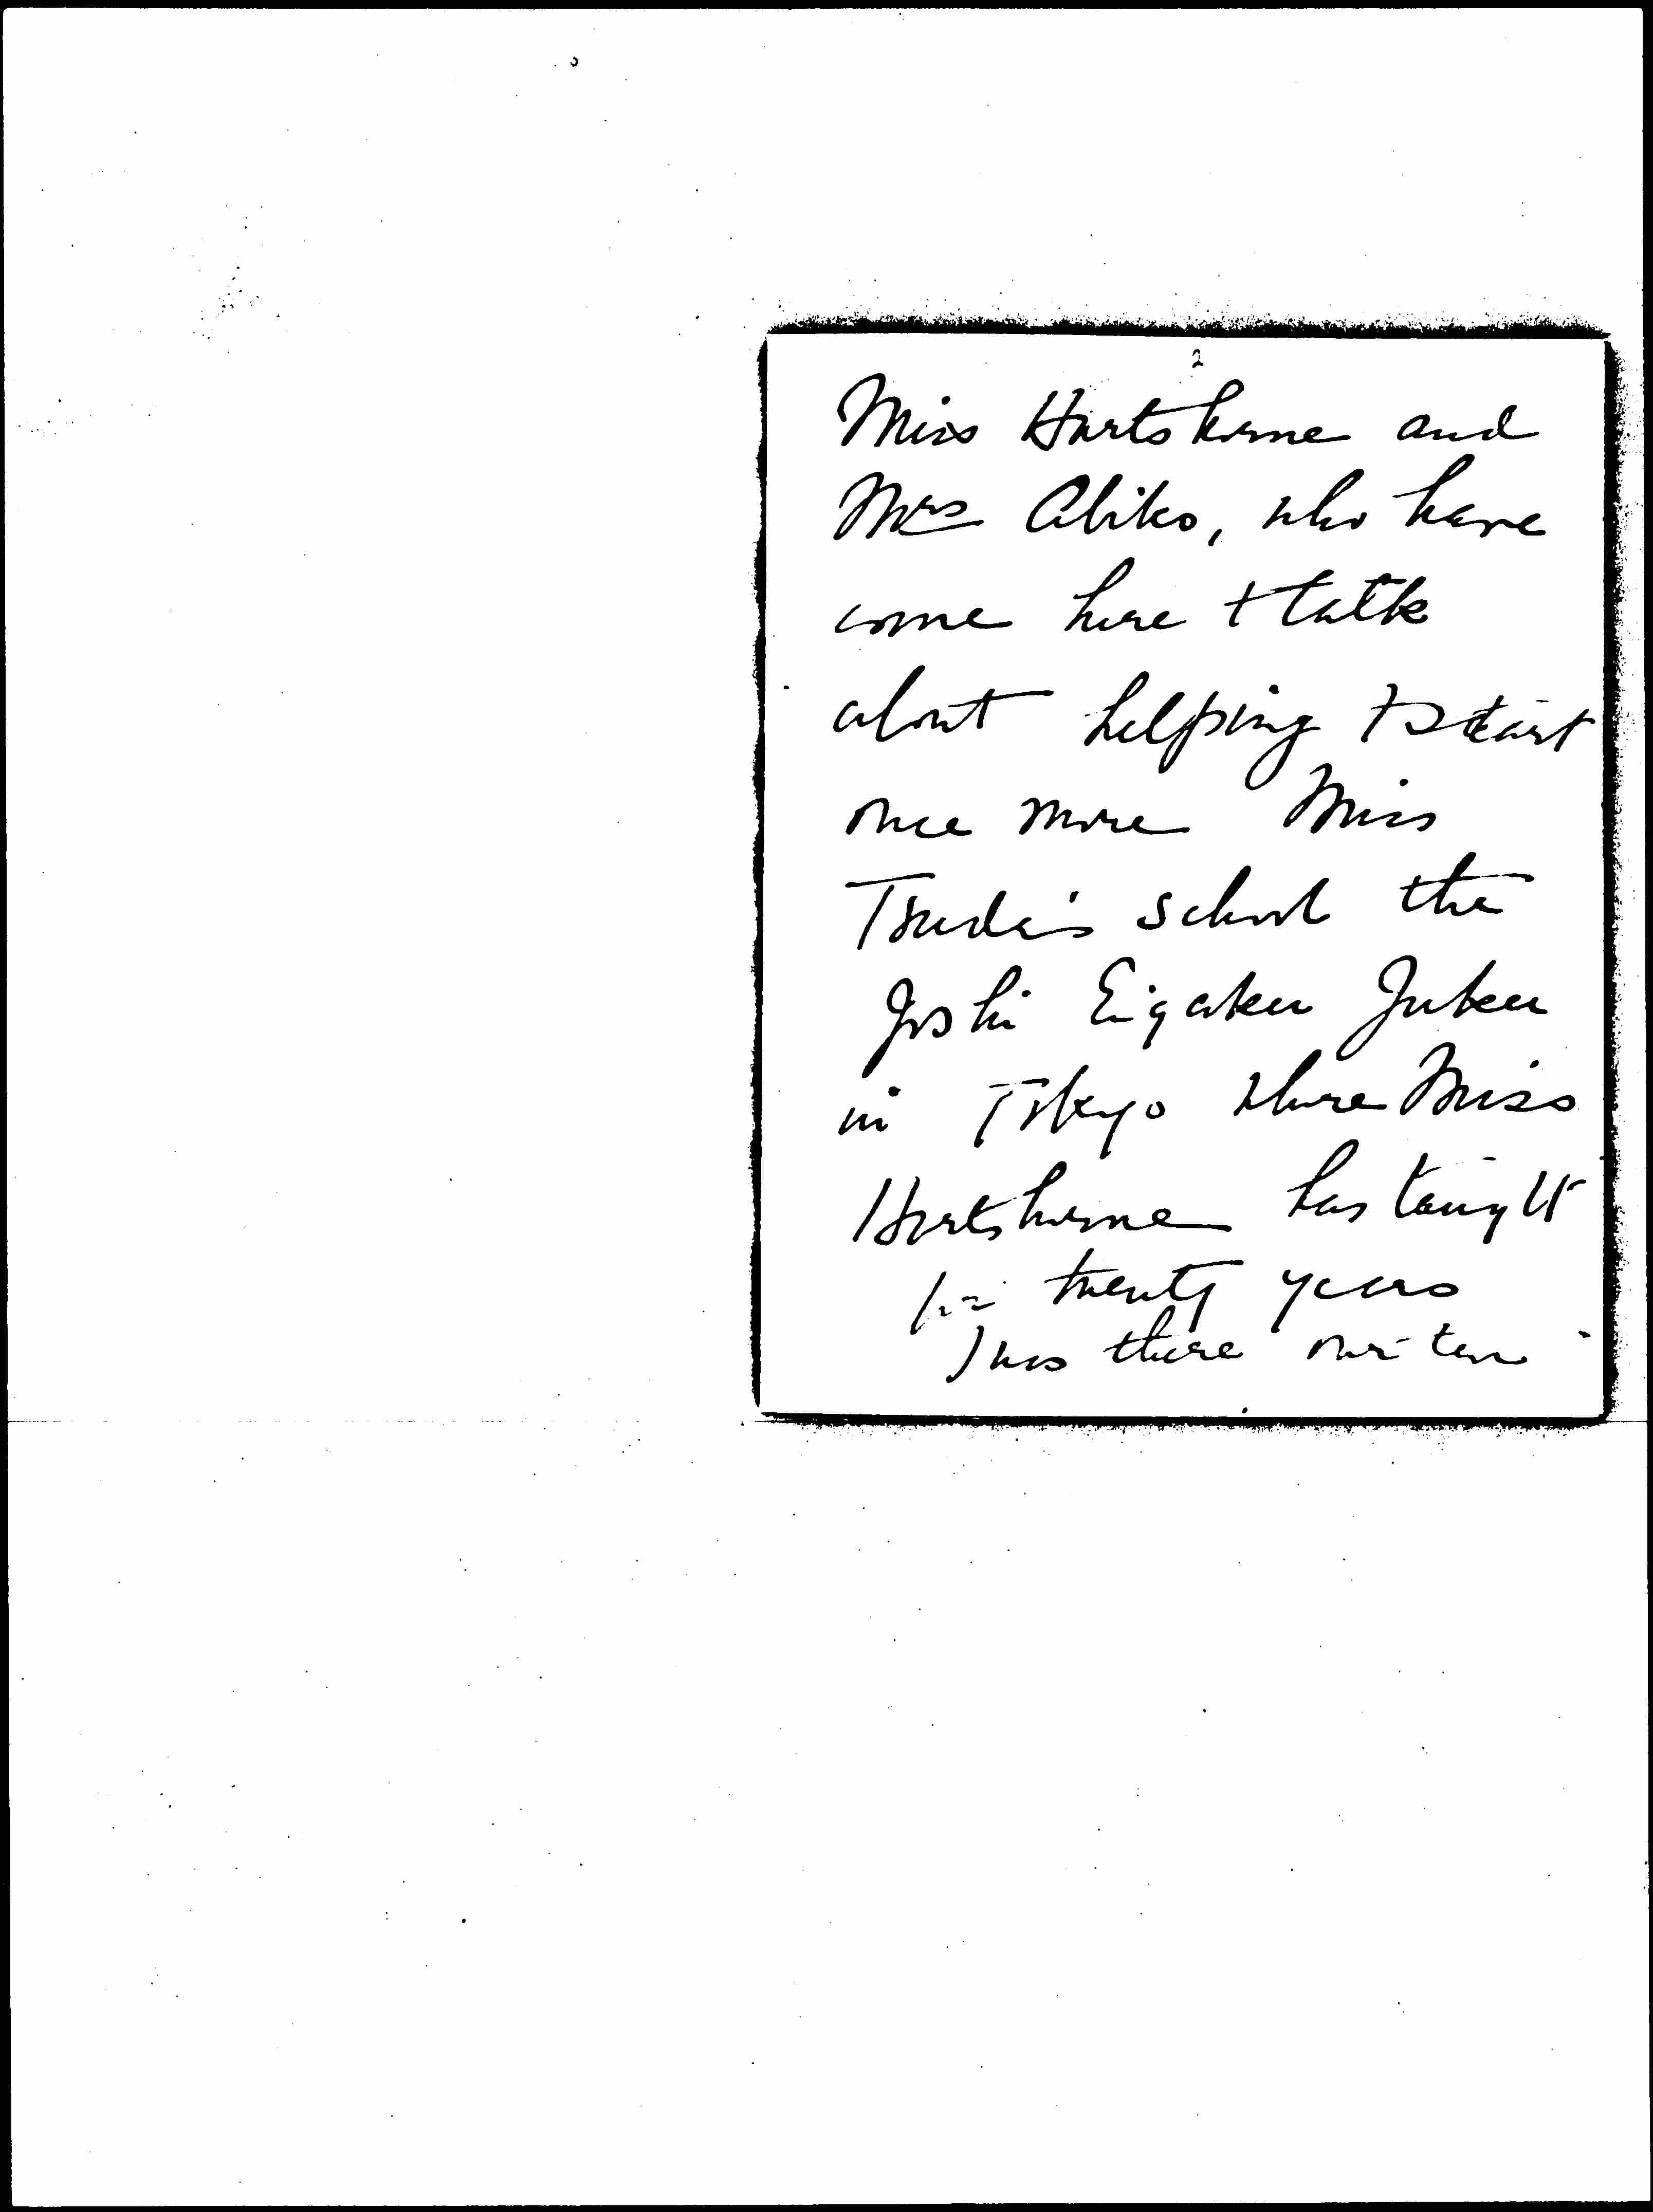 2
Miss Hartshorne and
Mrs Abiko, who have
come here to talk
about helping to start
once more Miss
Tsuda's school the
Joshi Eigaku Juku
in Tokyo where Miss
Hartshorne has taught
for twenty years
I was there over ten